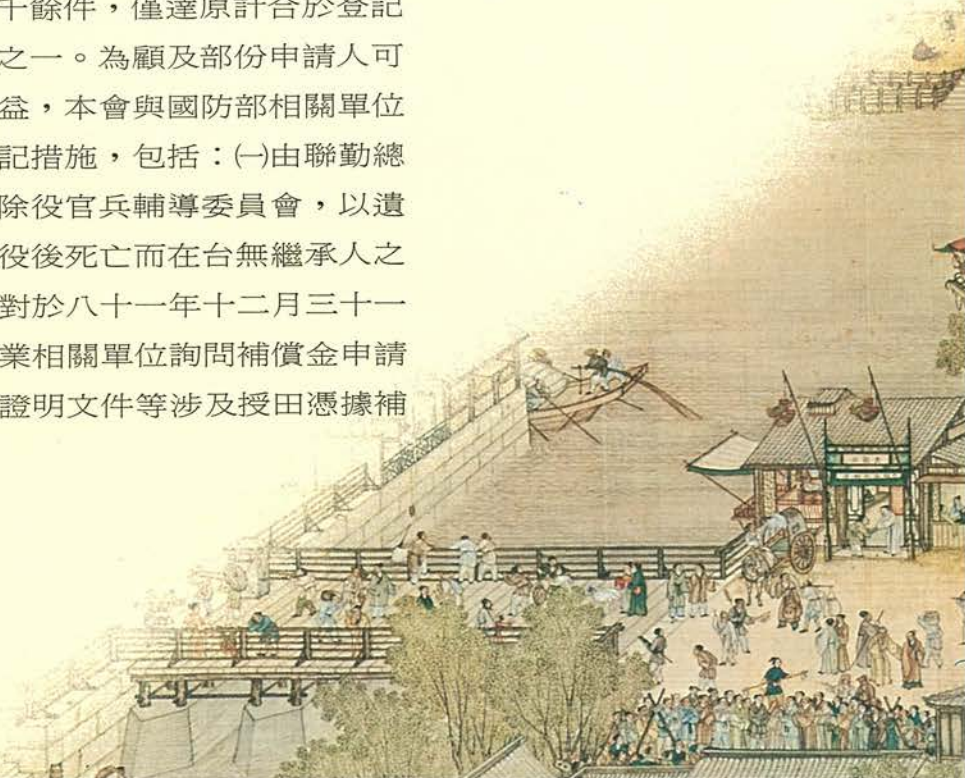 千餘件，僅達原計合於登記
之一。為顧及部份申請人可
益，本會與國防部相關單位
記措施，包括：㈠由聯勤總
除役官兵輔導委員會，以遺
役後死亡而在台無繼承人之
對於八十一年十二月三十一
業相關單位詢問補償金申請
證明文件等涉及授田憑據補